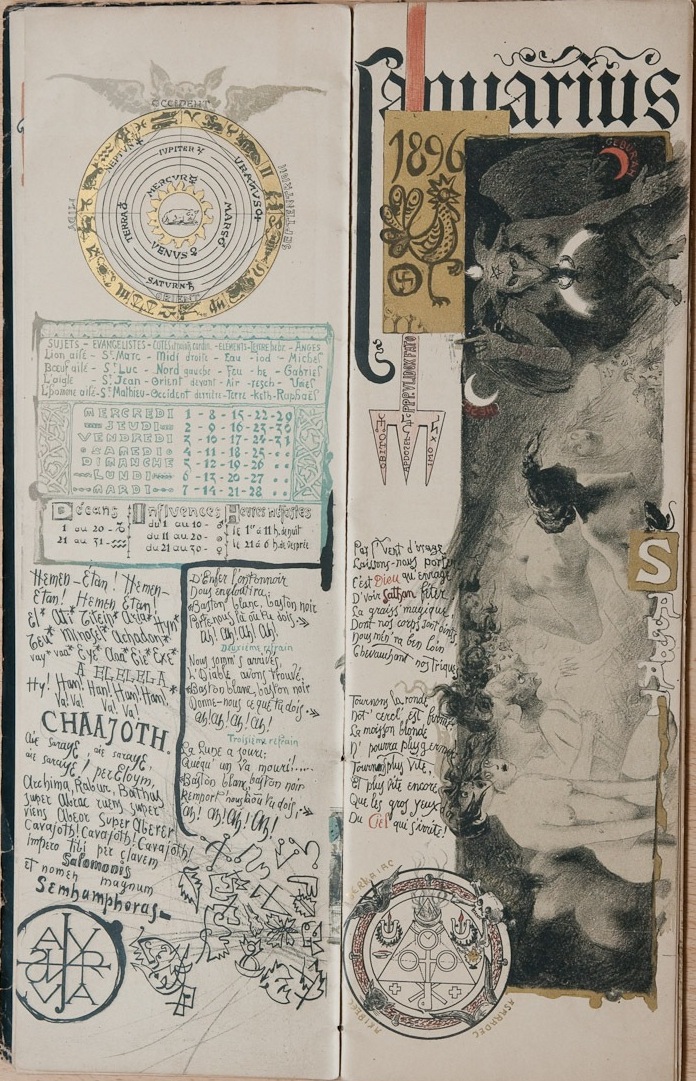 OCCIDENT
NEPTUN
JUPITER
URANUS
MERCURE
TERRA
MARS
VENUS
SATURN
ORIENT
SUJETS - EVANGELISTES - - ELEMENTS - - ANGES
Lion ailé - St Marc - Midi droite - Eau - iod - Michel
Bœuf ailé - St Luc - Nord gauche - Feu - he - Gabriel
L'aigle - St Jean - Orient devant - Air - resch -
L'homme ailé - St Mathieu - Occident derrière - Terre - - Raphaël
MERCREDI 1 - 8 - 15 - 22 - 29
JEUDI 2 - 9 - 16 - 23 - 30
VENDREDI 3 - 10 - 17 - 24 - 31
SAMEDI 4 - 11 - 18 - 25
DIMANCHE 5 - 12 - 19 - 26
LUNDI 6 - 13 - 20 - 27
MARDI 7 - 14 - 21 - 28
Décans
1 au 20 - ♑
21 au 31 - ♒
Influences
du 1 au 10 - ♂
du 11 au 20 -
du 21 au 30 -
Heures néfastes
le 1er à 11 h. de nuit
le 21 à 6 h. de vesprée
Hemen-Etan! Hemen-
Etan! Hemen Etan!
El* Ati* Titeip* Azia* Hyn*
Teu* Minosel* Achadon*
vay* vaa* Eye* Aaa* Eie* Exe*
A EL EL EL A
Hy! Hau! Hau! Hau! Hau!
Va! Va! Va! Va!
CHAAJOTH.
Aie Saraye, aie saraye,
aie saraye! per Eloym,
Archima, Rabur, Bathas
super Abrac ruens super
viens Abeor Super Aberer
Cavajoth! Cavajoth! Cavajoth!
impero tibi per clavem
Salomonis
et nomen magnum
Semhamphoras -
D'Enfer l'entonnoir
Nous engloutira,
Baston blanc, baston noir
Ah! Ah! Ah! Ah!
Deuxième refrain
Nous somm's arrivés,
L'Diable avons trouvé,
Baston blanc, baston noir
Donne-nous ce que tu dois
Ah! Ah! Ah! Ah!
Troisième refrain
La Lune a souri;
Quéqu'un va mouri!....
Baston blanc, baston noir
Remport'nous où tu dois,
Ah! Ah! Ah! Ah!
Januarius
1896
GEBURAH
HESED
S
Par l'Vent d'orage
Laissons-nous porter
C'est Dieu qu'enrage
D'voir Sathan fêter
La graiss' magique
Dont nos corps sont oints
Nous mèn'ra ben loin
Chevauchant nos triques
Tournons la ronde
Not' cercl' est fermé
La moisson blonde
N' pourra plus germer
Tournons plus vite,
Et plus vite encore
Que les gros yeux
Du Ciel qui s'irrite!
ASARADEC